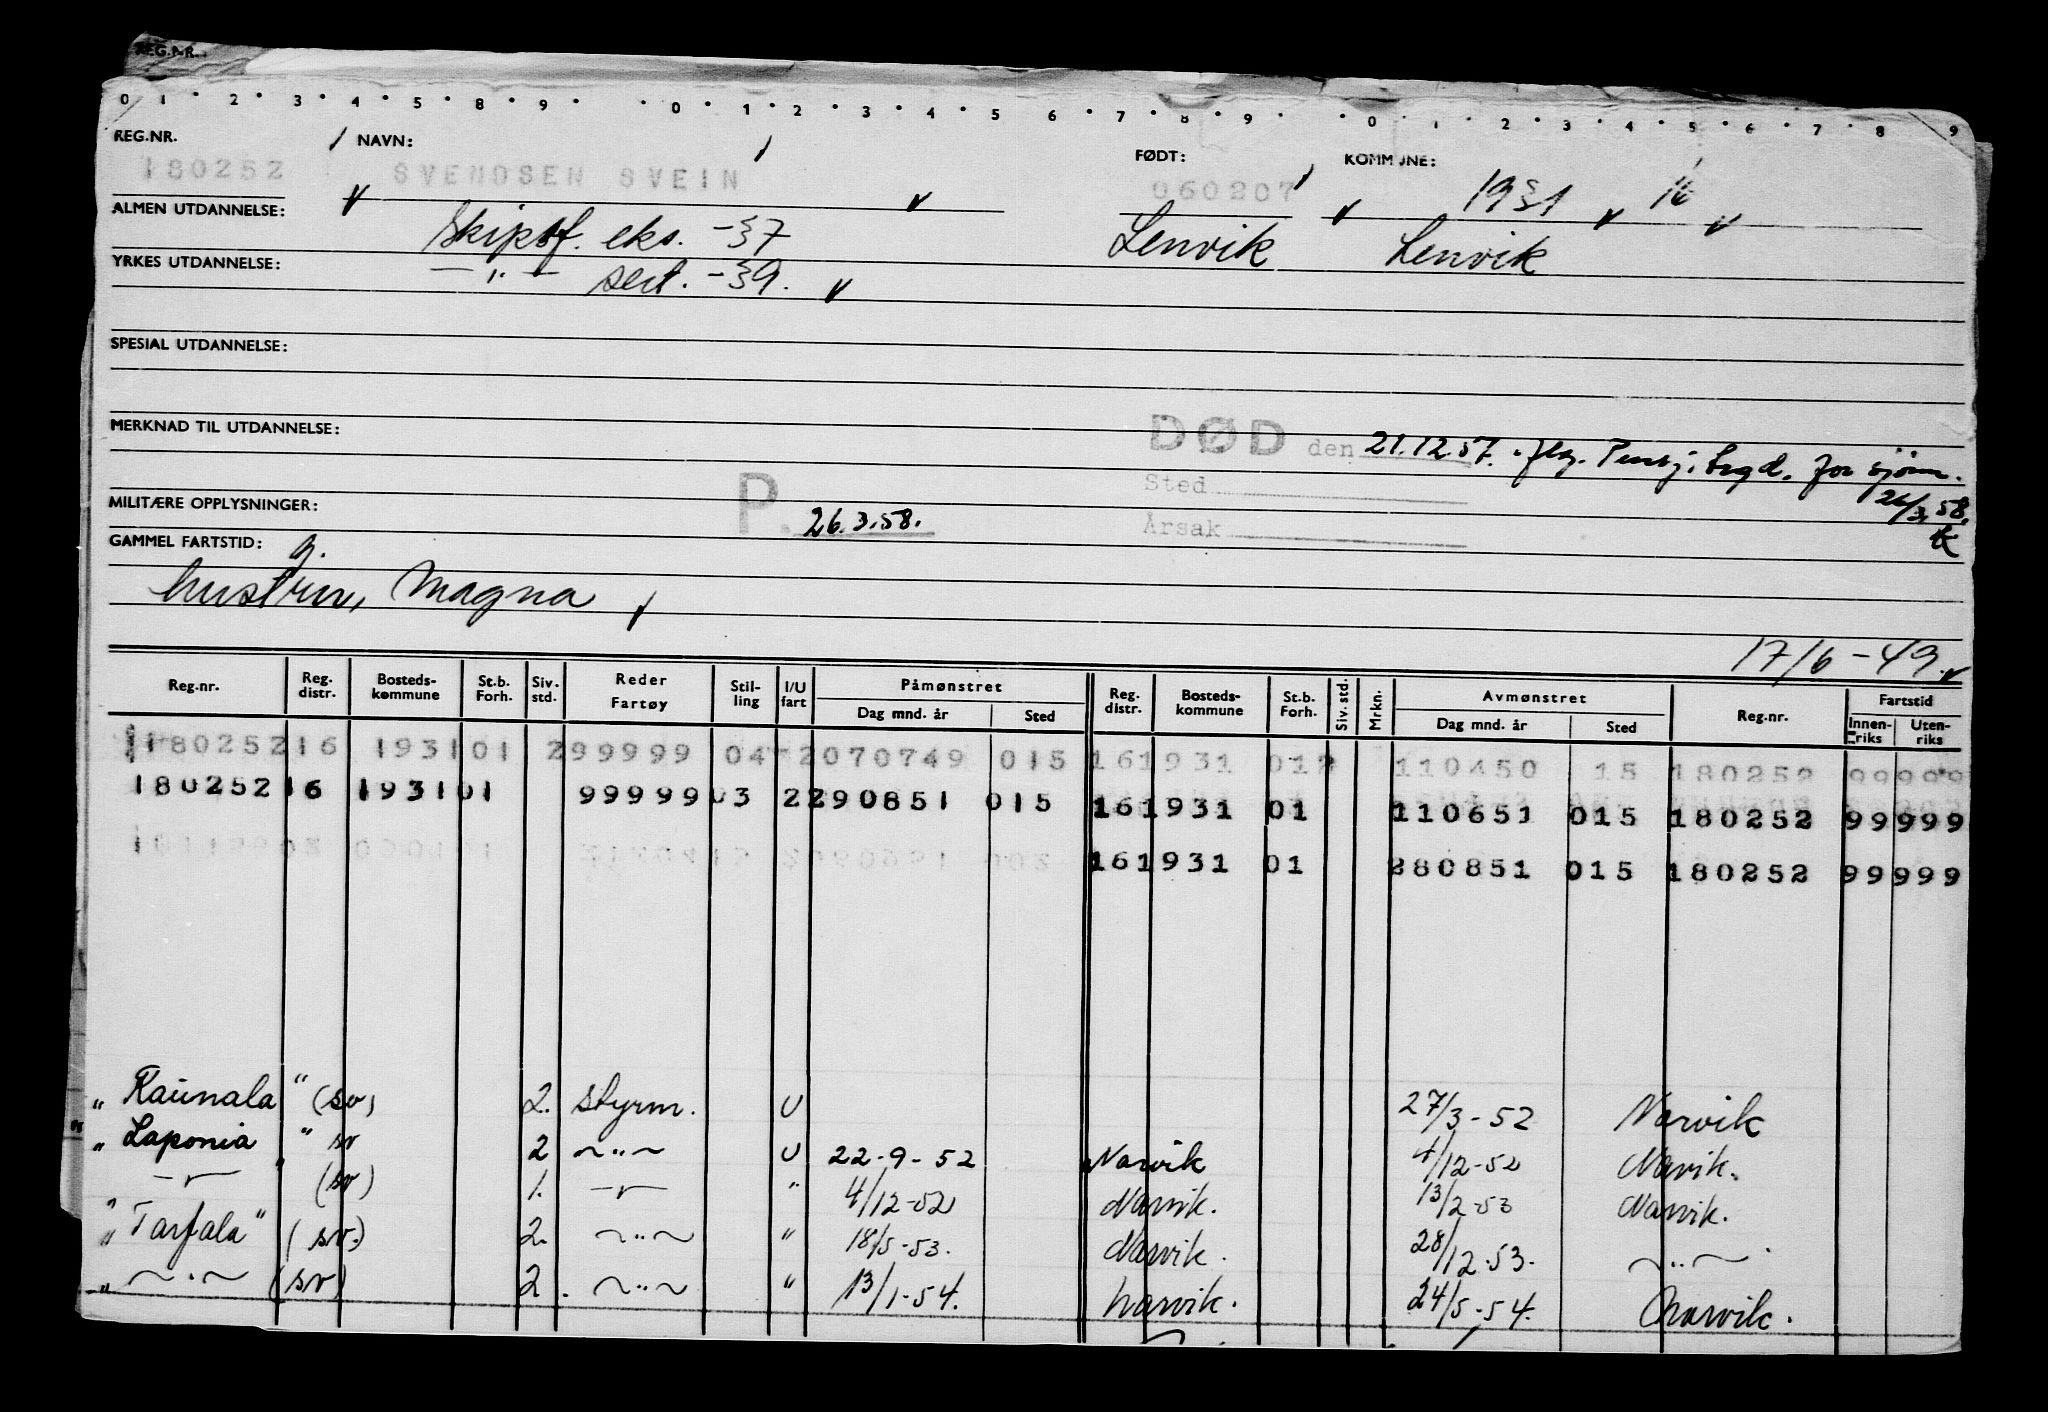 REG.NR.
0 1 2 3 4 5 8 9 0 1 2 3 4 5 6 7 8 9 0 1 2 3 4 5 6 7 8 9
REG.NR. NAVN: FØDT: KOMMUNE:
180252 SVENDSEN SVEIN 060207 1931 16
ALMEN UTDANNELSE: Skipsf. eks. -37 Lenvik Lenvik
YRKES UTDANNELSE: -"- sert. -39.
SPESIAL UTDANNELSE:
MERKNAD TIL UTDANNELSE: DØD den 21.12.57. flg. Pensj. trygd. for sjøm.
Sted 26/3 58.
MILITÆRE OPPLYSNINGER: P. 26.3.58. Årsak
GAMMEL FARTSTID: g.
hustru, Magna
17/6-49.
Reg.nr. Reg. distr. Bosteds-kommune St.b. Forh. Siv. std. Reder Fartøy Stil-ling I/U fart Påmønstret Dag mnd. år Sted Reg. distr. Bosteds-kommune St.b. Forh. Siv.std. Mrkn. Avmønstret Dag mnd. år Sted Reg.nr. Fartstid Innen-riks Uten-riks
180252 16 1931 01 2 99999 04 2 070749 015 16 1931 01 110450 15 180252 99 999
180252 16 1931 01 99999 03 2 290851 015 16 1931 01 110651 015 180252 99 999
16 1931 01 280851 015 180252 99 999
"Kaunala" (sv) 2. styrm. U 27/3-52 Narvik
"Laponia" sv 2 ~"~ U 22-9-52 Narvik 4/12-52 Narvik.
-"- (sv) 1. -"- " 4/12-52 Narvik. 13/2-53 Narvik.
"Tarfala" (sv.) 2. ~"~ " 18/5-53. Narvik. 28/12-53. ~"~.
"~"~ (sv) 2. ~"~ " 13/1-54. Narvik. 24/5-54. Narvik.